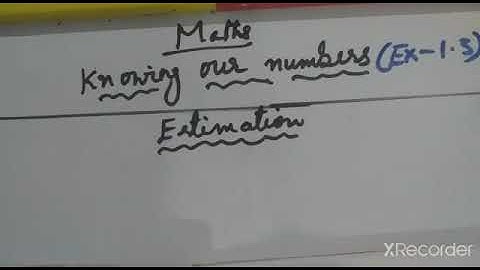 Maths
Knowing our numbers (Ex-1.3)
Estimation
XRecorder